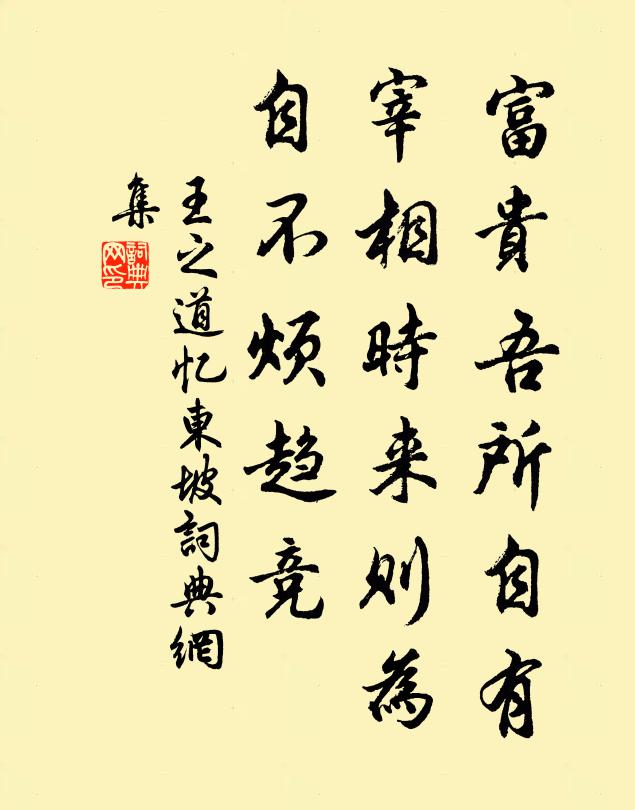 富貴吾所自有
宰相時来則為
自不煩趋竞
王之道忆東坡詞典網
集
詞典
网印